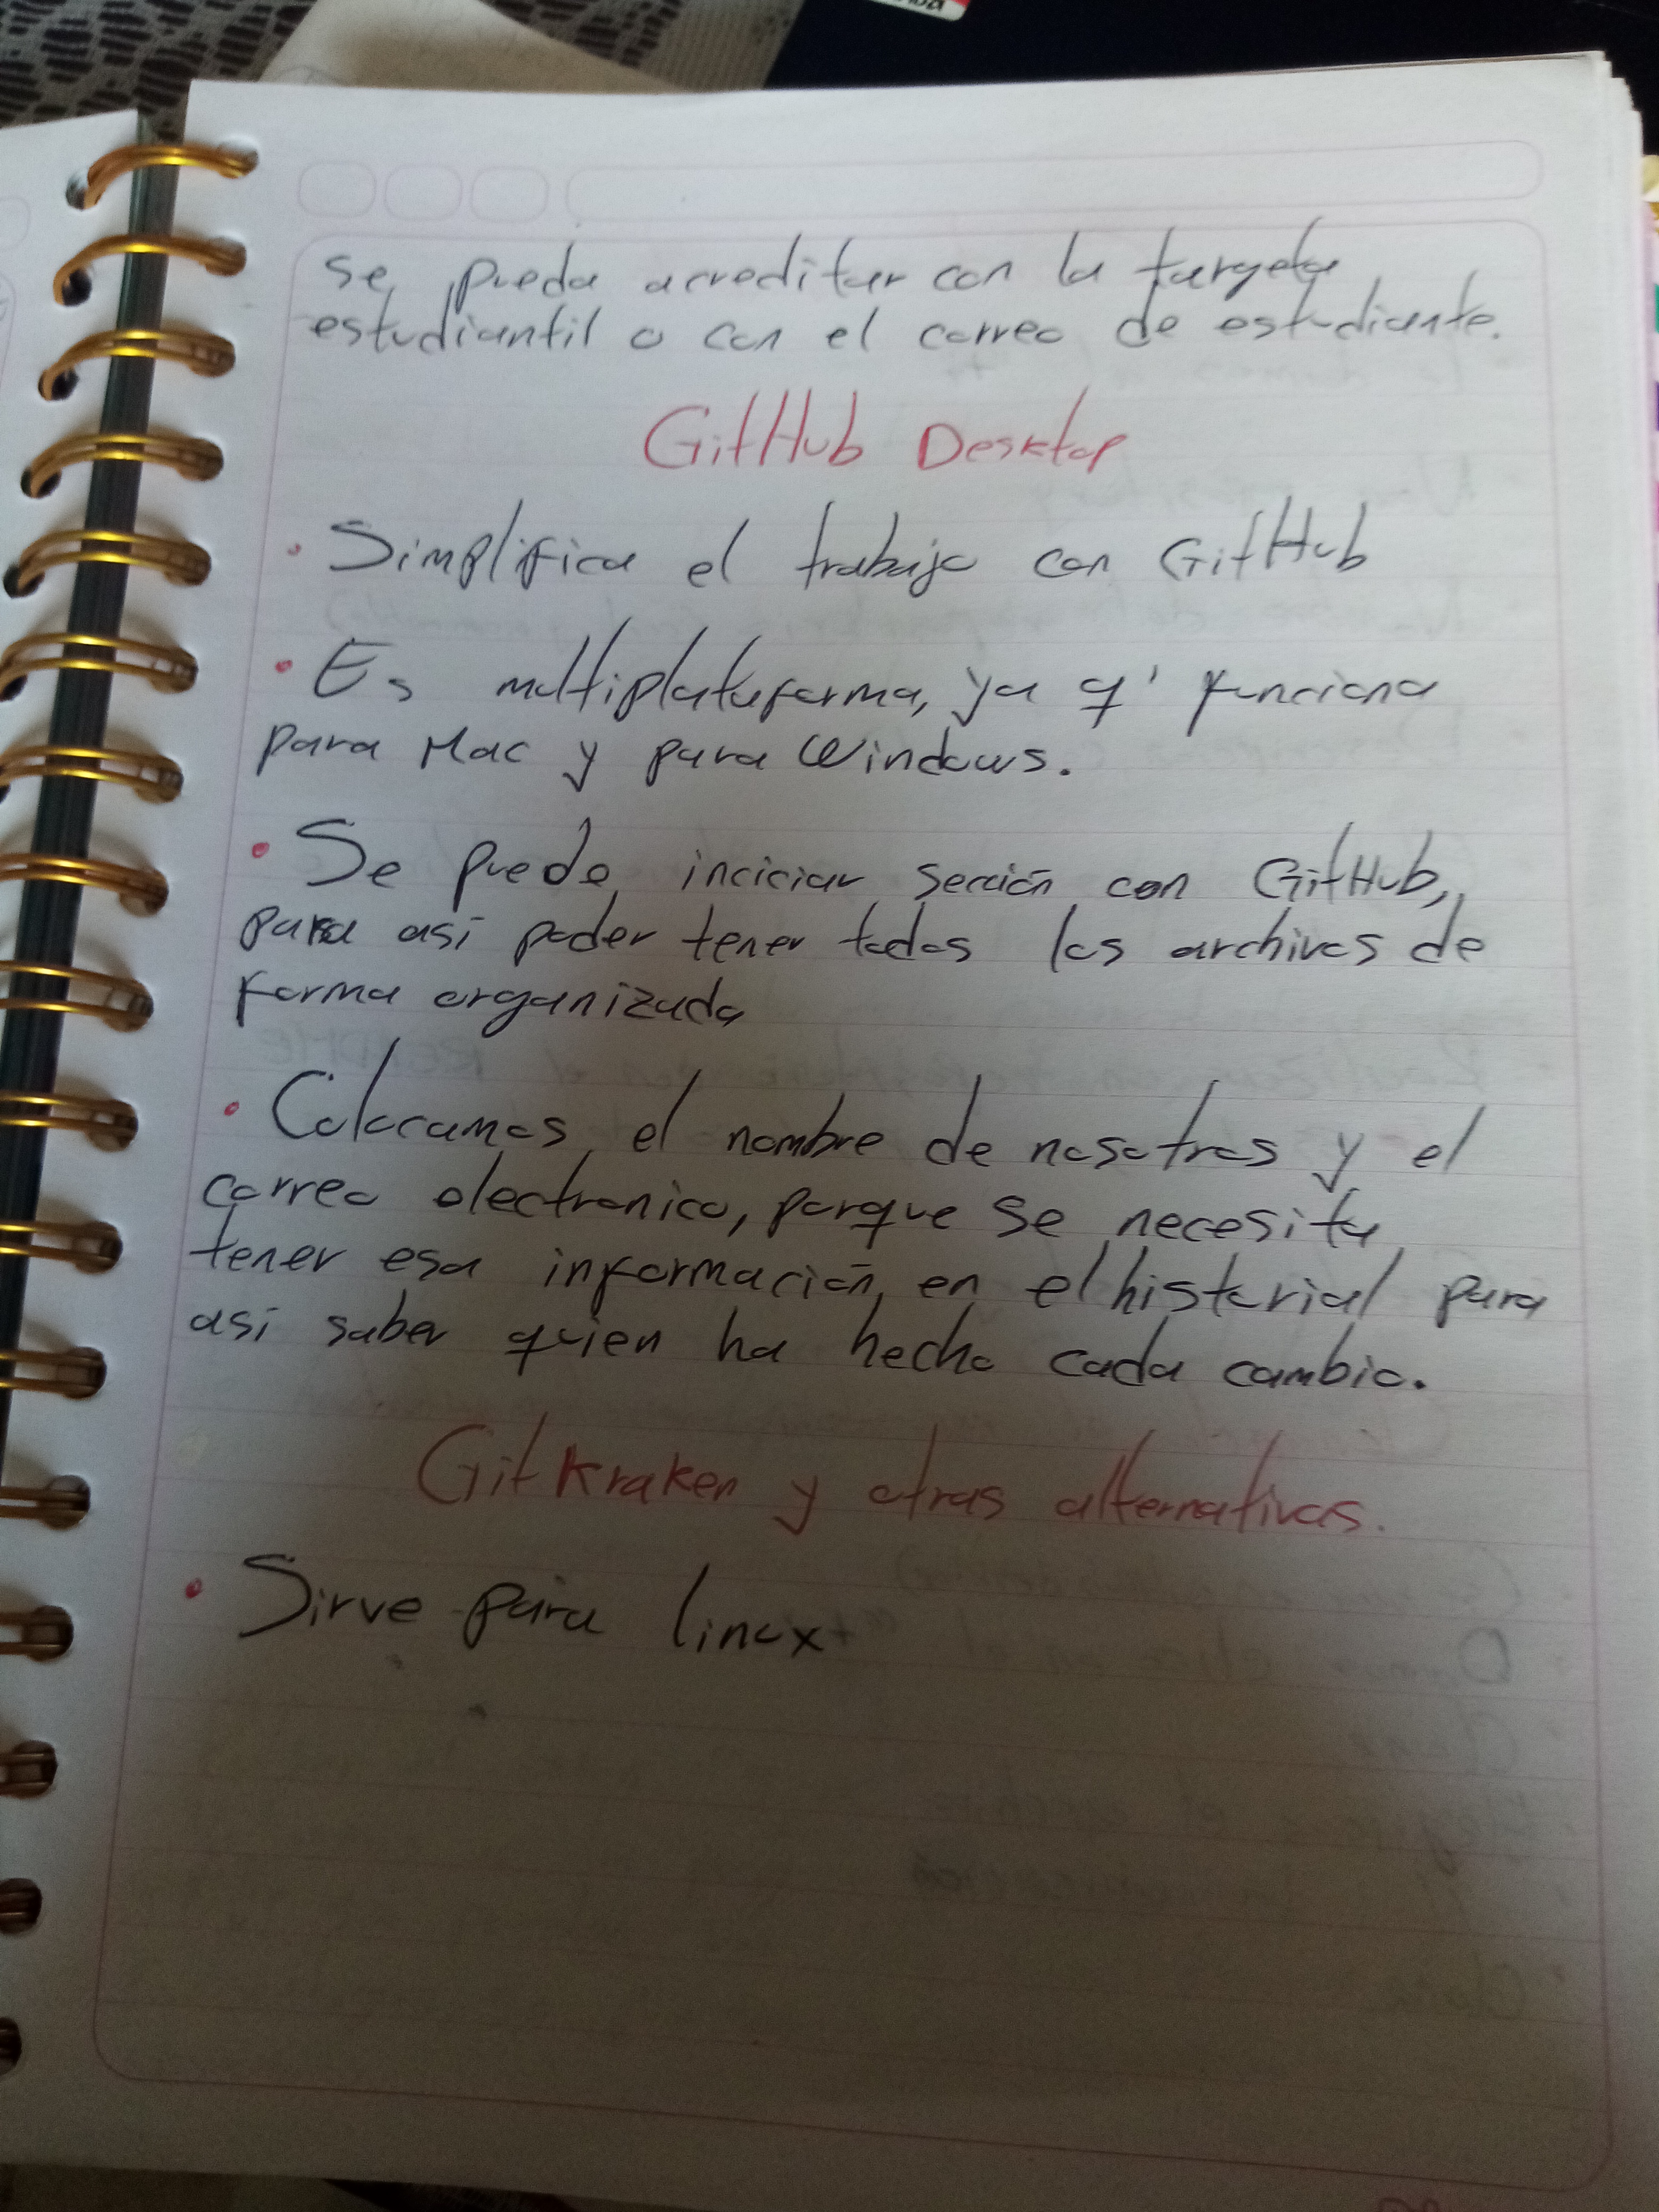 se pueda acreditar con la targeta
estudiantil o con el correo de estudiante.
GitHub Desktop
• Simplifica el trabajo con GitHub
• Es multiplataforma, ya q' funciona
para Mac y para Windows.
• Se puede inciciar sección con GitHub,
para así poder tener todos los archivos de
forma organizada
• Colocamos el nombre de nosotros y el
correo electronico, porque se necesita
tener esa información en el historial para
asi saber quien ha hecho cada cambio.
GitKraken y otras alternativas.
• Sirve para linux